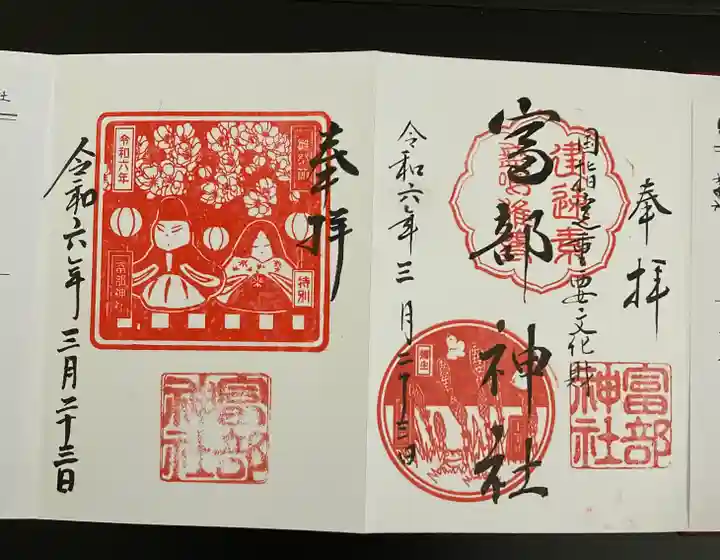 奉拝
国指定重要文化財
富部神社
令和六年三月二十三日
富部神社
奉拝
令和六年
特別
富部神社
令和六年三月二十三日
富部神社
社